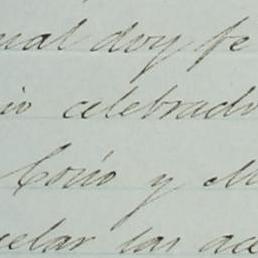 ual doy fe
io celebrado
Corio y M
celar las ace